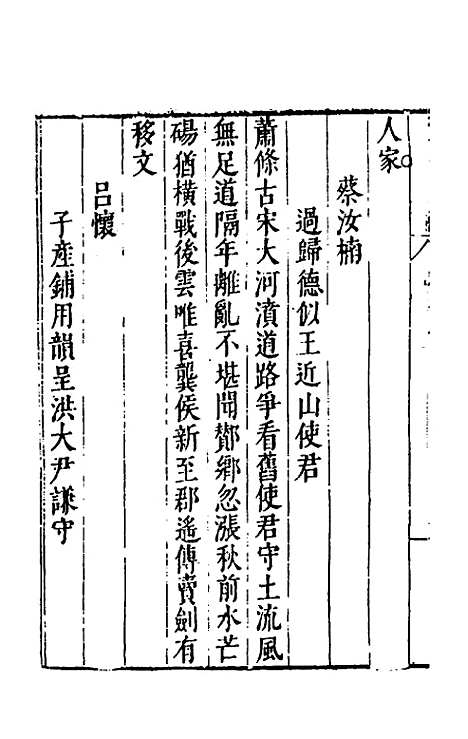 人家。
蔡汝楠
過歸德似王近山使君
蕭條古宋大河濆道路爭看舊使君守土流風
無足道隔年離亂不堪聞鄼鄉忽漲秋前水芒
碭猶橫戰後雲唯喜龔侯新至郡遙傳賣劍有
移文
呂懷
子產鋪用韻呈洪大尹謙守